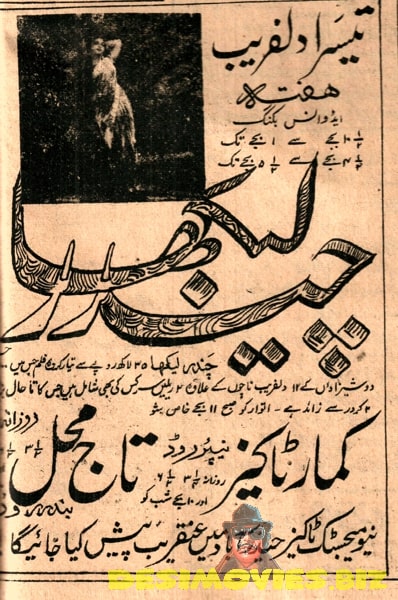 تیسرا دلفریب
ہفتہ
ایڈوانس بکنگ
۱۰ ۱/۲ بجے سے ۱ بجے تک
۴ ۱/۲ بجے سے ۵ ۱/۲ بجے تک
چندر لیکھا
چندر لیکھا ۳۵ لاکھ روپے سے تیار کردہ فلم جس میں
دوشیزاؤں کے ۱۲ دلفریب ناچوں کے علاوہ ۴ ریلیں سرکس کی بھی شامل ہیں جس کا تا حال
۲ کروڑ سے زائد ہے۔ اتوار کو صبح ۱۱ بجے خاص شو
کمار ٹاکیز
نیپیر روڈ
روزانہ ۳ ۱/۲ ۶ ۱/۲
اور ۱۰ بجے شب کو
تاج محل
روزانہ
۳ ۱/۲
بندر روڈ
نیو میجسٹک ٹاکیز حیدرآباد میں عنقریب پیش کیا جائیگا
DESIMOVIES.BIZ